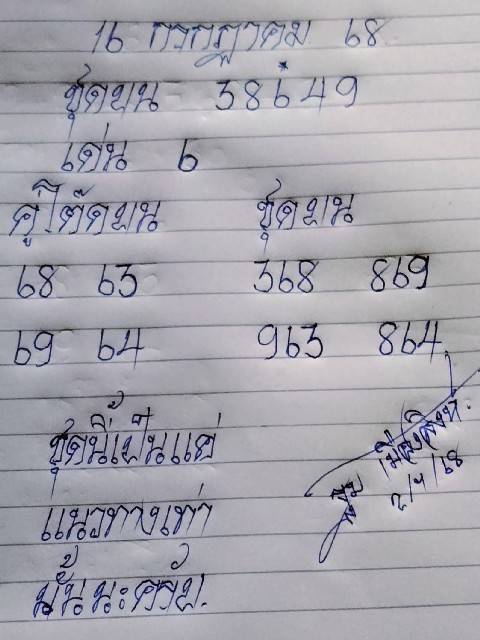 16 กรกฎาคม 68
ชุดบน 38649
เด่น 6
คู่โต๊ดบน ชุดบน
68 63 368 869
69 64 963 864
ชุดนี้เป็นแค่
แนวทางเท่า
นั้นนะครับ.
เมืองสิงห์.
2/7/68